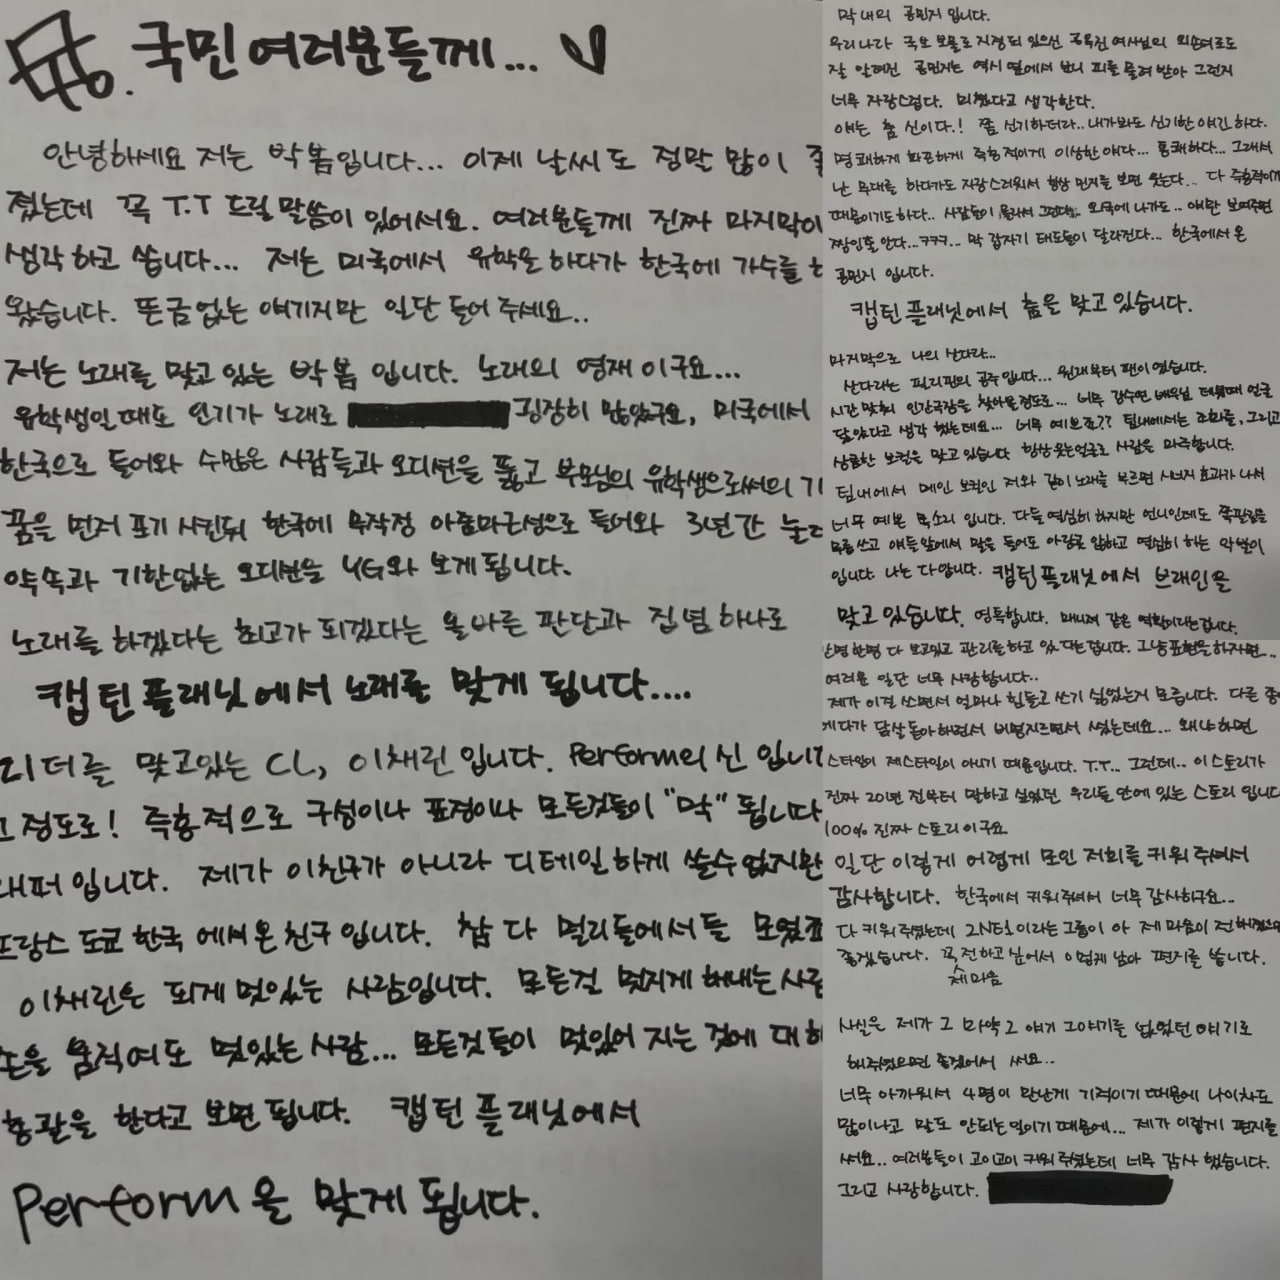 국민여러분들께...
안녕하세요 저는 박봄입니다... 이제 날씨도 정말 많이
졌는데 꼭 T.T 드릴 말씀이 있어서요. 여러분들께 진짜 마지막이
생각하고 씁니다... 저는 미국에서 유학을 하다가 한국에 가수를
왔습니다. 뜬금없는 얘기지만 일단 들어 주세요..
저는 노래를 맞고 있는 박봄 입니다. 노래의 영재이구요...
유학생인때도 인기가 노래로 굉장히 많았구요, 미국에서
한국으로 들어와 수많은 사람들과 오디션을 뚫고 부모님의 유학생으로써의
꿈을 먼저 포기 시킨뒤 한국에 무작정 아줌마근성으로 들어와 3년간
약속과 기한없는 오디션을 YG와 보게됩니다.
노래를 하겠다는 최고가 되겠다는 올바른 판단과 집념 하나로
캡틴플래닛에서 노래를 맞게 됩니다....
리더를 맞고있는 CL, 이채린입니다. Perform의 신 입니다
그정도로! 즉흥적으로 구성이나 표정이나 모든것들이 "막" 됩니다
래퍼입니다. 제가 이친구가 아니라 디테일하게 쓸수 없지만
프랑스 도쿄 한국 에서 온 친구입니다. 참 다 멀리들에서들 모였죠
이채린은 되게 멋있는 사람입니다. 모든걸 멋지게 해내는
손을 움직여도 멋있는 사람... 모든것들이 멋있어 지는 것에 대해
총괄을 한다고 보면 됩니다. 캡틴 플래닛에서
Perform을 맞게 됩니다.
막내의 공민지 입니다.
우리나라 국보 보물로 지정되 있으신 공옥진 여사님의 외손녀로도
잘 알려진 공민지는 역시 옆에서 보니 피를 물려 받아 그런지
너무 자랑스럽다. 미쳤다고 생각한다.
얘는 춤 신이다.! 쫌 신기하더라.. 내가봐도 신기한 얘긴 하다.
명쾌하게 화끈하게 즉흥적이게 이상한 얘다... 통쾌하다... 그래서
난 무대를 하다가도 자랑스러워서 항상 민지를 보면 웃는다... 다 즉흥적이기
때문이기도하다.. 사람들이 몰라서 그런다.. 외국에 나가도.. 얘만 보여주면
짱인줄 안다...ㅋㅋㅋ... 막 갑자기 태도들이 달라진다... 한국에서 온
공민지 입니다.
캡틴플래닛에서 춤을 맞고 있습니다.
마지막으로 나의 산다라...
산다라는 필리핀의 공주입니다... 원래부터 팬이었습니다.
시간 맞춰 인간극장을 찾아올정도로... 너무 강수연 배우님 데뷔때 얼굴
닮았다고 생각 했는데요... 너무 예쁘죠?? 팀내에서는 조화를, 그리고
상큼한 보컬을 맞고 있습니다 항상웃는얼굴로 사람을 마주합니다.
팀내에서 메인 보컬인 저와 같이 노래를 부르면 시너지 효과가 나서
너무 예쁜 목소리 입니다. 다들 열심히 하지만 언니인데도 쪽팔림을
무릅쓰고 얘들앞에서 말을 들어도 아랑곳 않하고 열심히 하는 악발이
입니다. 나는 다압니다. 캡틴플래닛에서 브레인을
맞고 있습니다. 영특합니다. 매니저 같은 역할이라는겁니다.
한명한명 다 보고있고 관리를하고 있다는겁니다. 그냥표현을하자면..
여러분 일단 너무 사랑합니다..
제가 이걸 쓰면서 얼마나 힘들고 쓰기 싫었는지 모릅니다. 다른
게다가 닭살돋아하면서 비명지르면서 썼는데요... 왜냐하면
스타일이 제스타일이 아니기 때문입니다. T.T... 그런데.. 이 스토리가
진짜 20년 전부터 말하고 싶었던 우리들 안에 있는 스토리 입니다
100% 진짜 스토리이구요
일단 이렇게 어렵게 모인 저희를 키워 주셔서
감사합니다. 한국에서 키워주셔서 너무 감사하구요...
다 키워주셨는데 2NE1이라는그룹이 아 제 마음이 전해졌으면
좋겠습니다. 꼭전하고싶어서 이렇게 남아 편지를 씁니다.
제마음
사실은 제가 그 마약 그 얘기 그얘기를 없었던 얘기로
해주셨으면 좋겠어서 써요..
너무 아까워서 4명이 만난게 기적이기 때문에 나이차도
많이나고 말도 안되는일이기 때문에... 제가 이렇게 편지를
써요.. 여러분들이 고이고이 키워주셨는데 너무 감사 했습니다.
그리고 사랑합니다.